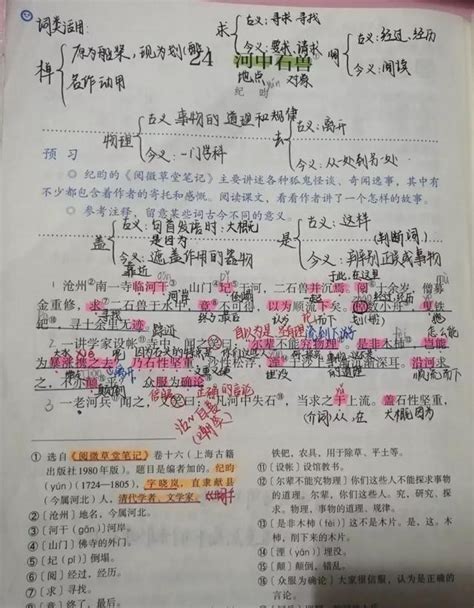 词类活用:
棹
原为船桨,现为划(船)
名作动用
求
古义:寻求 寻找
今义:要求、请求
阅
古义:经过、经历
今义:阅读
24 河中石兽
地点 对象
纪 昀
yún
物理
古义 事物的道理和规律
今义:一门学科
去
古义:离开
今义:从一处到另一处
预 习
◎ 纪昀的《阅微草堂笔记》主要讲述各种狐鬼怪谈、奇闻逸事,其中有
不少都包含着作者的寄托和感慨。阅读课文,看看作者讲了一个怎样的故事。
◎ 参考注释,留意某些词古今不同的意义。
盖
古义:句首发语时:大概
是因为
今义:遮盖作用的器物
是
古义:这样
(判断词)
今义:判别正误或事物
靠近
于此,在这里
1 沧州②南一寺临河干③,山门④圮⑤于河,二石兽并沉焉。阅⑥十余岁,僧募
金重修,求⑦二石兽于水中,竟⑧不可得。以为顺流下矣,棹⑨数小舟,曳铁
钯⑩,寻十余里无迹。
踪迹
2 一讲学家设帐⑪寺中,闻之笑曰:“尔辈不能究物理⑫,是非木杮⑬,岂能
为暴涨携之去?乃石性坚重,沙性松浮,湮⑭于沙上,渐沉渐深耳。沿河求
之,不亦颠⑮乎?”众服为确论⑯。
颠倒
正确的言论
3 一老河兵闻之,又笑曰:“凡河中失石⑰,当求之于上流。盖石性坚
(介词)从、在
大概 因为
① 选自《阅微草堂笔记》卷十六(上海古籍
出版社1980年版)。题目是编者加的。纪昀
(yún)(1724—1805),字晓岚,直隶献县
(今属河北)人,清代学者、文学家。
② 〔沧州〕地名,今属河北。
③ 〔河干(gān)〕河岸。
④ 〔山门〕佛寺的外门。
⑤ 〔圮(pǐ)〕倒塌。
⑥ 〔阅〕经过,经历。
⑦ 〔求〕寻找。
铁钯,农具,用于除草、平土等。
⑪ 〔设帐〕设馆教书。
⑫ 〔尔辈不能究物理〕你们这些人不能探求事物
的道理。尔辈,你们这些人。究,研究、探
求。物理,事物的道理、规律。
⑬ 〔是非木杮(fèi)〕这不是木片。是,这。木
杮,削下来的木片。
⑭ 〔湮(yān)〕埋没。
⑮ 〔颠〕颠倒,错乱。
⑯ 〔众服为确论〕大家很信服,认为是正确的言
论。